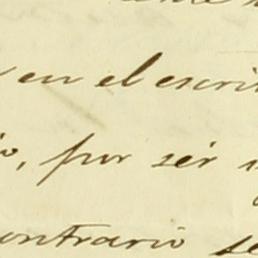 en el escri
por ser
ontrario se